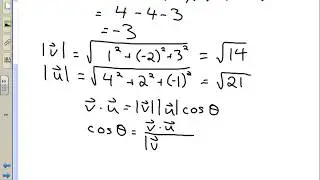 = 4 - 4 - 3
= -3
|v⃗| = √(1² + (-2)² + 3²) = √14
|u⃗| = √(4² + 2² + (-1)²) = √21
v⃗ · u⃗ = |v⃗| |u⃗| cos θ
cos θ = v⃗ · u⃗ / |v⃗